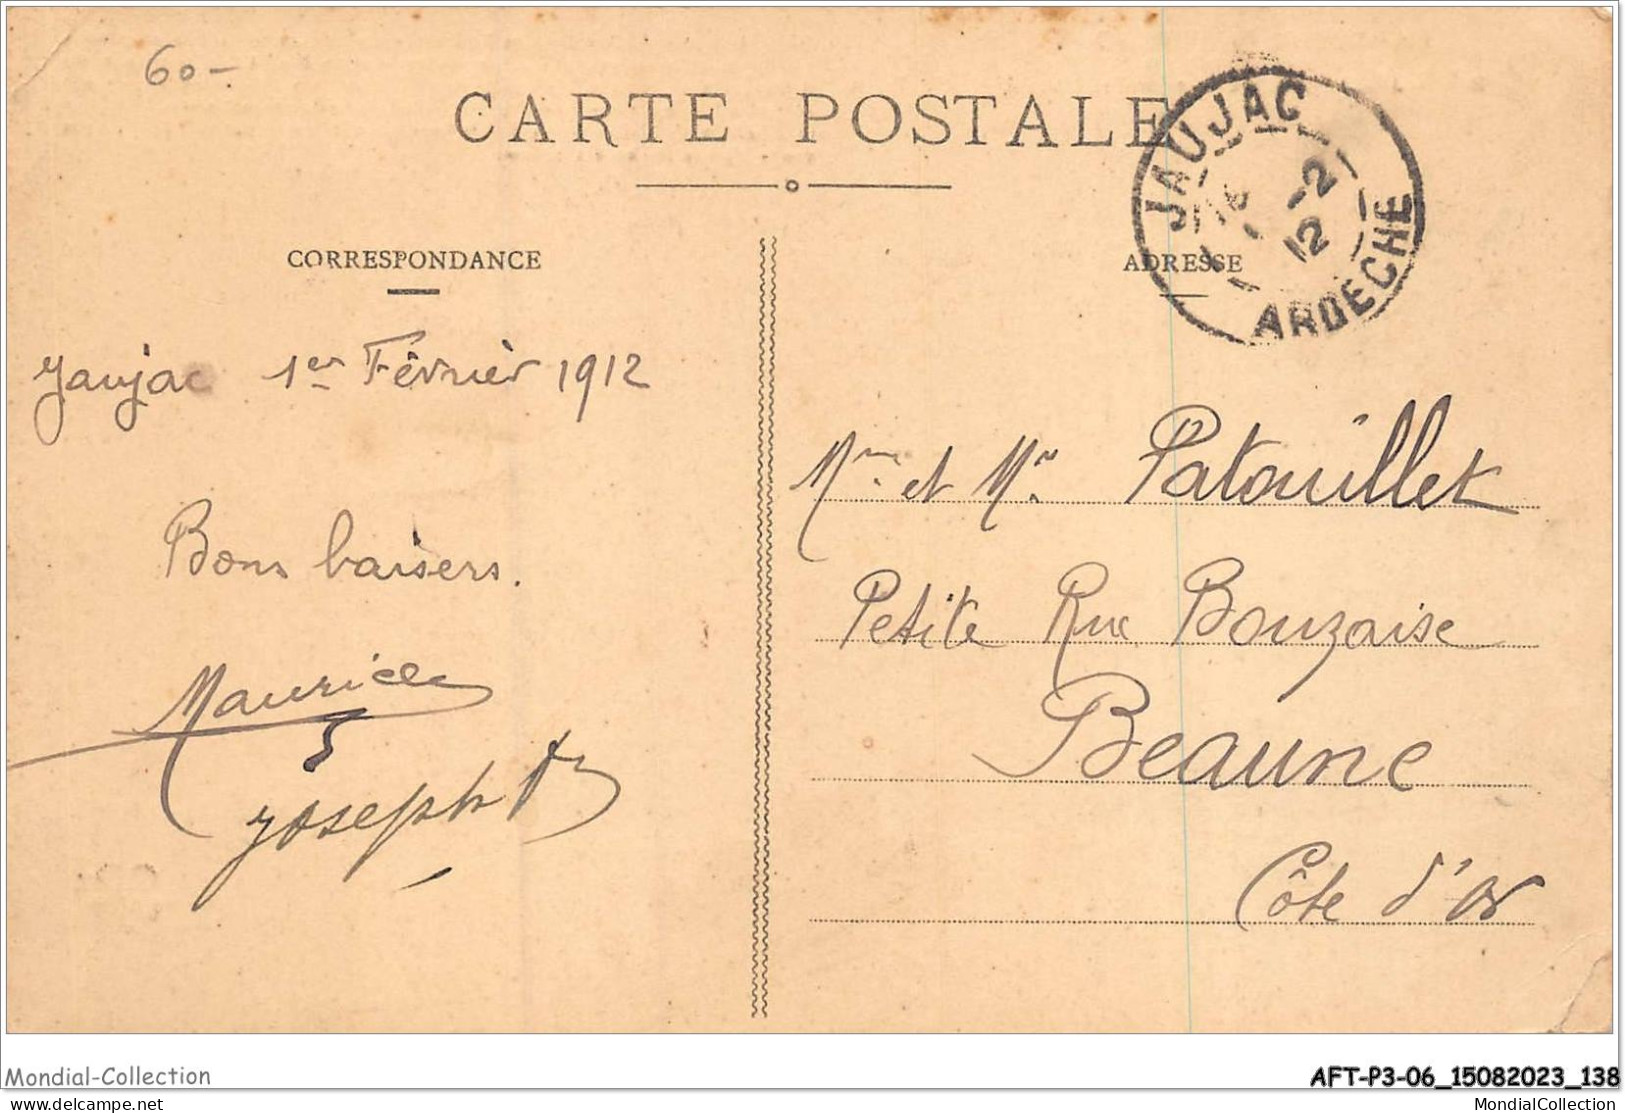 60-
CARTE POSTALE
JAUJAC
-2
12
ARDECHE
CORRESPONDANCE
ADRESSE
Jaujac 1er Février 1912
Bons baisers.
Maurice
Joseph
Mme et Mr Patouillet
Petite Rue Bouzaise
Beaune
Côte d'Or
Mondial-Collection
AFT-P3-06_15082023_138
delcampe.net
MondialCollection